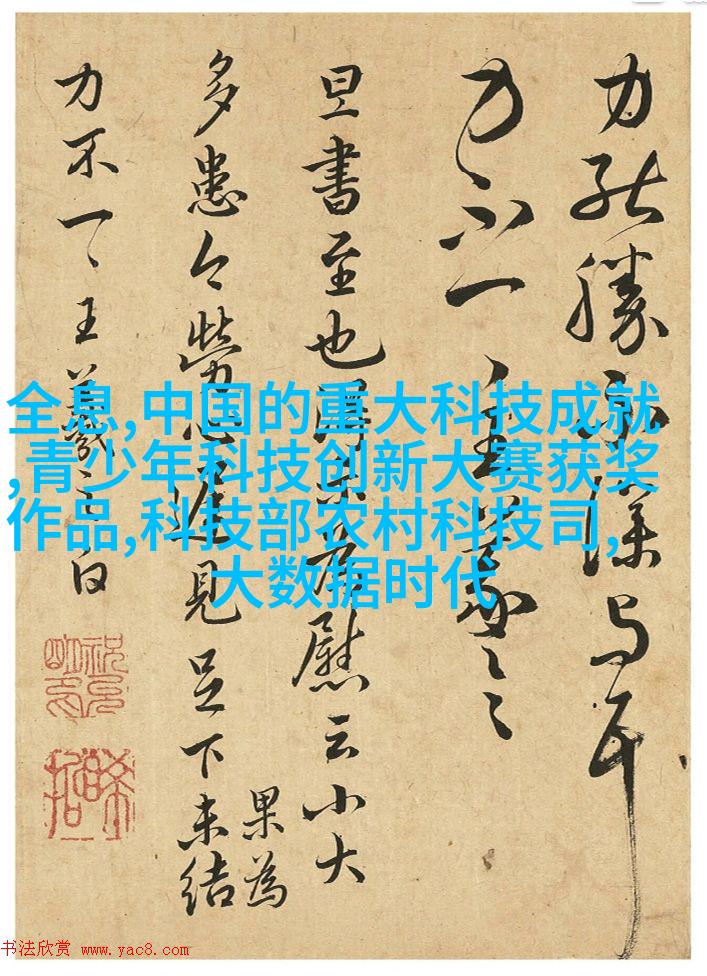 全息,中国的重大科技成就
,青少年科技创新大赛获奖
作品,科技部农村科技司,
大数据时代
力
勝
力不一
旦書至也得示為慰云小大
多患念勞心遲見足下未結
果為
力不一一王羲之白
书法欣赏 www.yac8.com